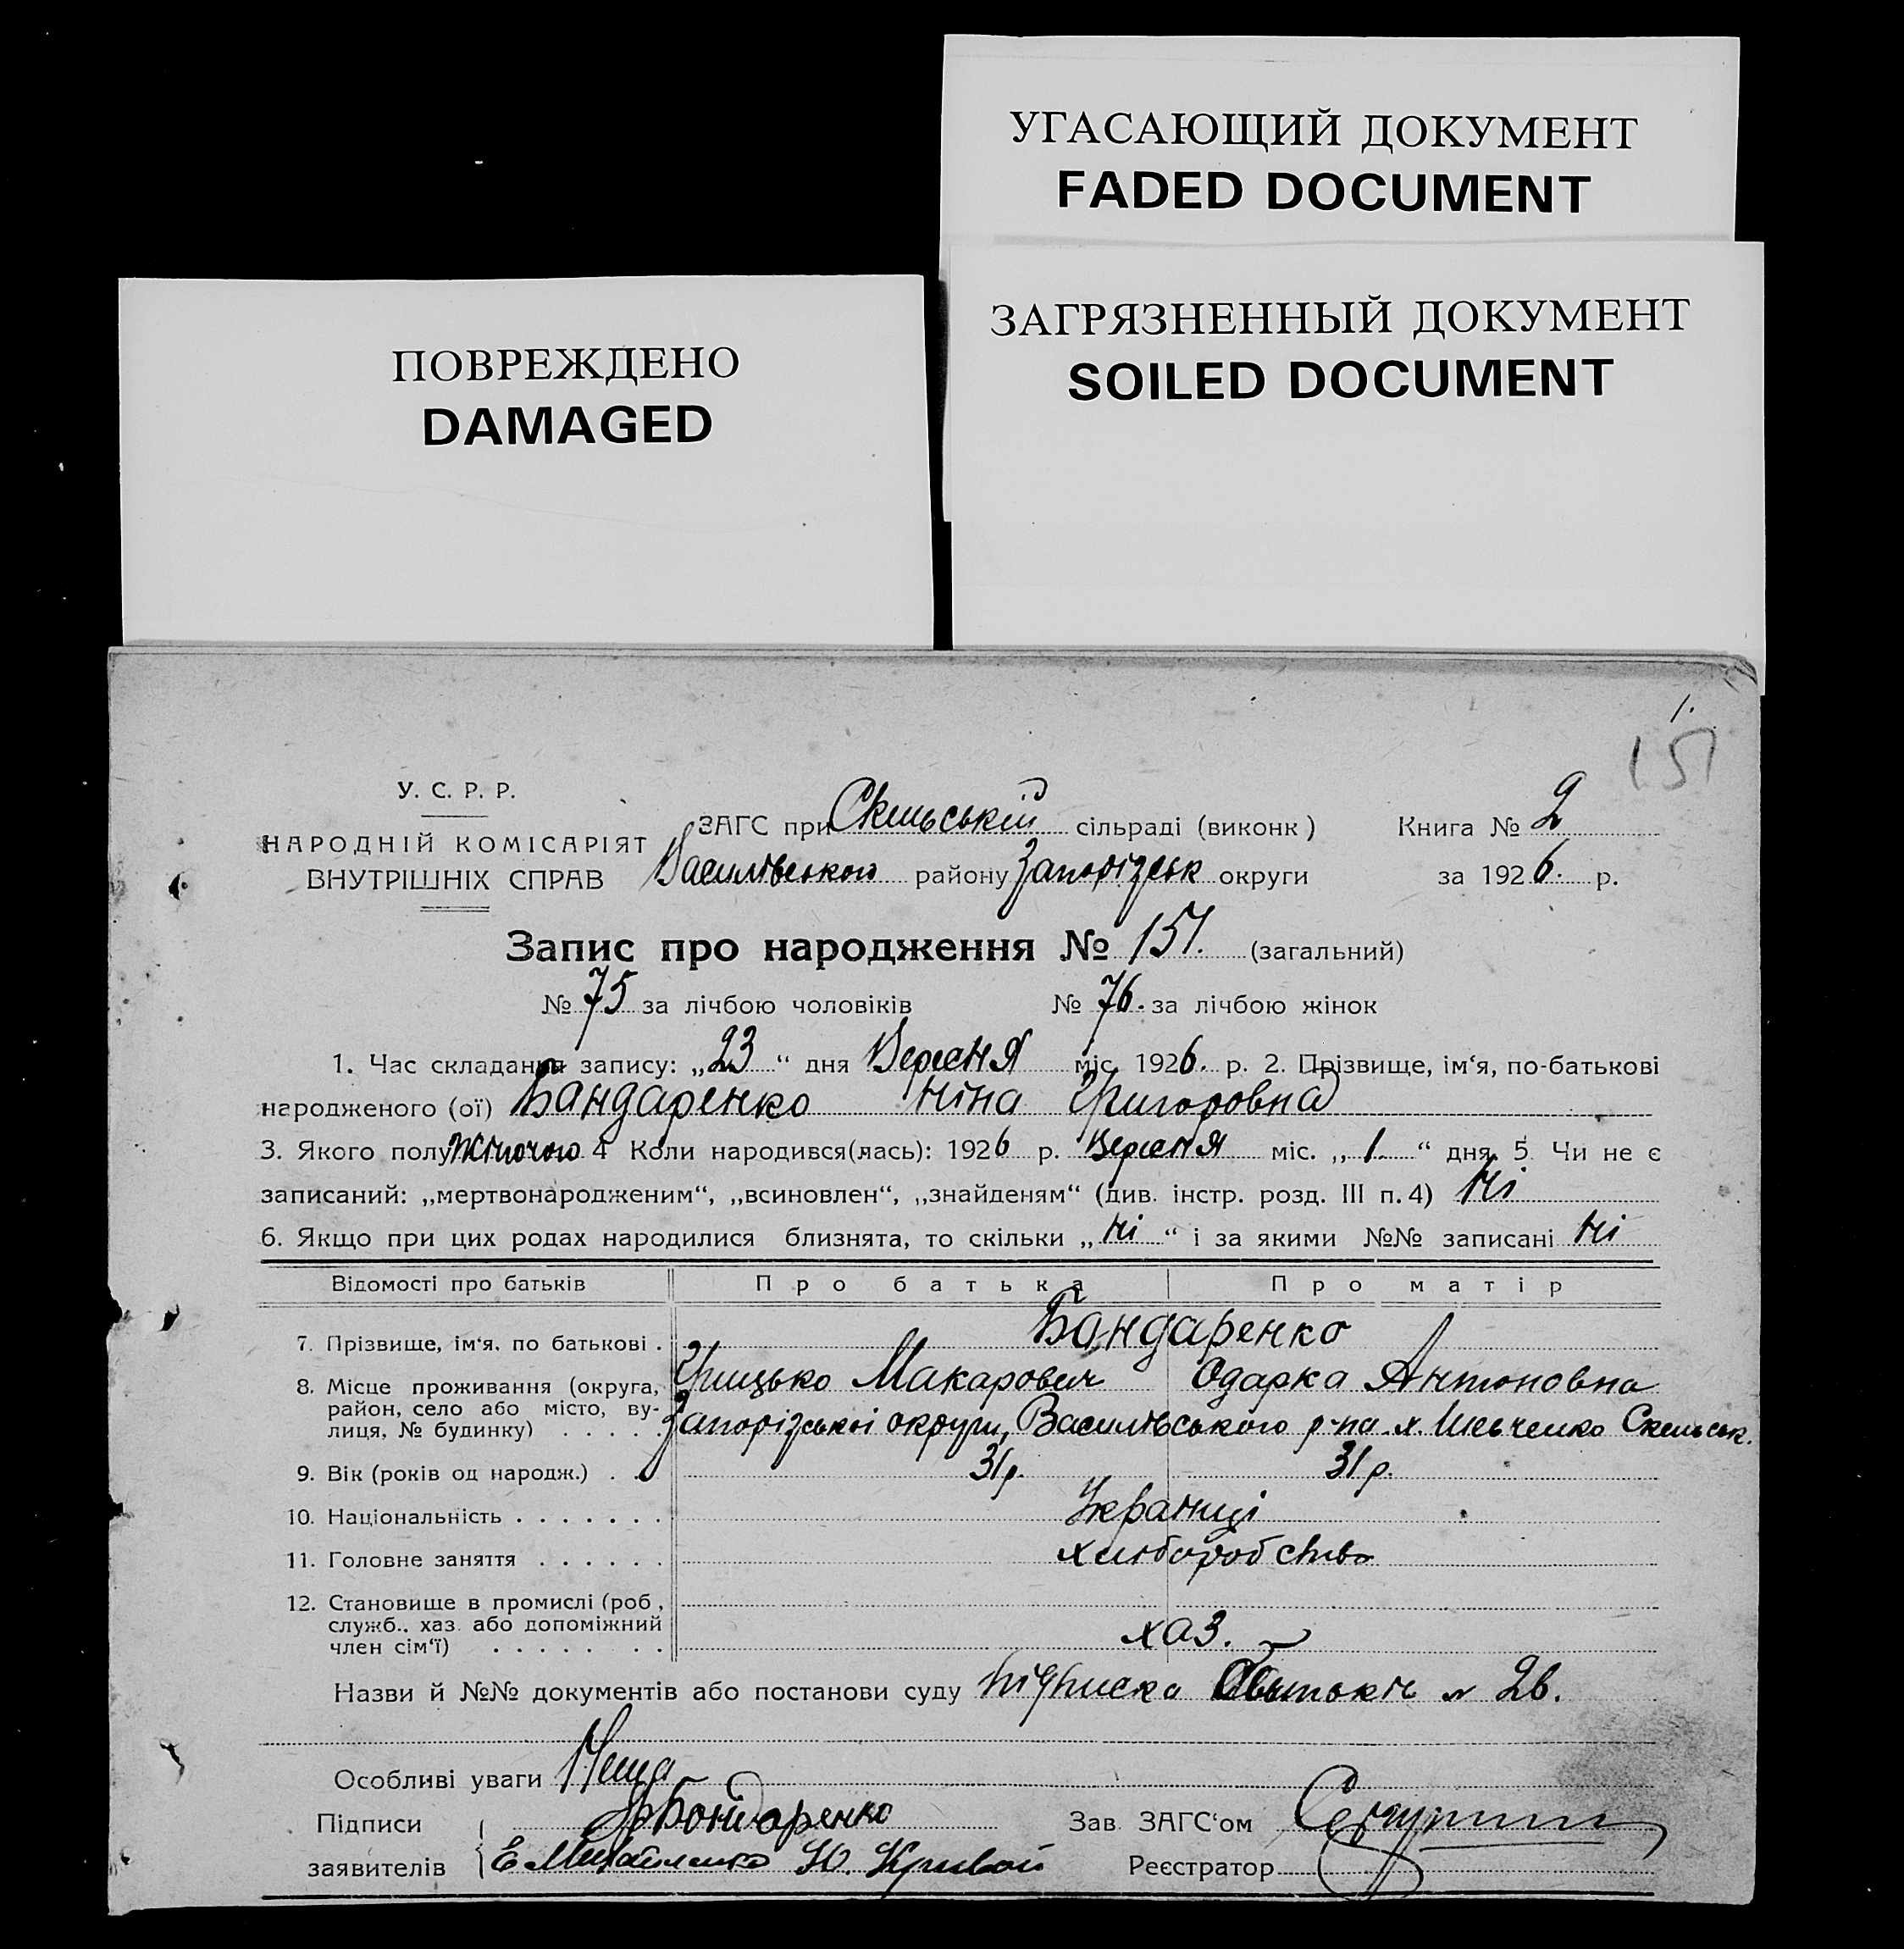 УГАСАЮЩИЙ ДОКУМЕНТ
FADED DOCUMENT
ЗАГРЯЗНЕННЫЙ ДОКУМЕНТ
SOILED DOCUMENT
ПОВРЕЖДЕНО
DAMAGED
1.
151
У. С. Р. Р.
НАРОДНІЙ КОМІСАРІЯТ
ВНУТРІШНІХ СПРАВ
ЗАГС при Скельській сільраді (виконк) Книга № 2
Василівського району Запорізськ округи за 1926. р.
Запис про народження № 151. (загальний)
№ 75 за лічбою чоловіків № 76. за лічбою жінок
1. Час складання запису: „23“ дня Вересня міс. 1926. р. 2. Прізвище, ім‘я, по-батькові
народженого (ої) Бандаренко Ніна Григоровна
3. Якого полу Жіночого 4 Коли народився(лась): 1926 р. Вересня міс. „1.“ дня 5 Чи не є
записаний: „мертвонародженим“, „всиновлен“, „знайденям“ (див. інстр. розд. III п. 4) Ні
6. Якщо при цих родах народилися близнята, то скільки „Ні“ і за якими №№ записані Ні
Відомості про батьків Про батька Про матір
7. Прізвище, ім‘я, по батькові . Бандаренко
Грицько Макарович Одарка Антоновна
8. Місце проживання (округа, район, село або місто, вулиця, № будинку) . . . . . Запорізської округи, Василівського р-на х. Шевченко Скельськ.
9. Вік (років од народж.) . . 31 р. 31 р.
10. Національність . . . . . . . Українці
11. Головне заняття . . . . . . хліборобство
12. Становище в промислі (роб., служб., хаз. або допоміжний член сім‘ї) . . . . . . . хаз.
Назви й №№ документів або постанови суду підписка 
Особливі уваги Нема
Підписи Бондаренко Зав. ЗАГС‘ом
заявителів Е Михайленко Ю. Кривой Реєстратор